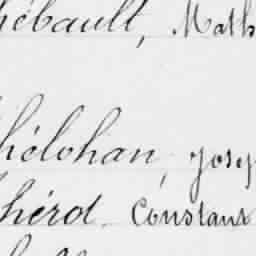 hébault, Math
hélohan, Josep
hérot. Constant